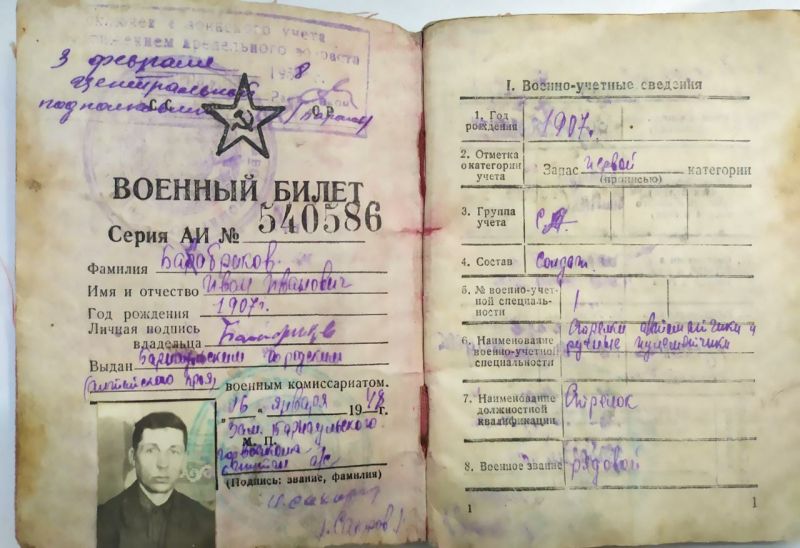 3 февраля
Центральный
подполковник
С. С. О Р
ВОЕННЫЙ БИЛЕТ
Серия АИ № 540586
Фамилия
Имя и отчество Иван Иванович
Год рождения 1907г.
Личная подпись
владельца
Выдан Барнаульским городским
(Алтайского края) военным комиссариатом.
"16" января 1948 г.
Зам. Барнаульского
горвоенкома
М. П.
капитан а/с
(Подпись: звание, фамилия)
I. Военно-учетные сведения
1. Год рождения 1907г.
2. Отметка о категории учета Запас первой категории
(прописью)
3. Группа учета С.А.
4. Состав Солдат
5. № военно-учетной специальности 1
6. Наименование военно-учетной специальности Стрелки автоматчики и
ручные пулеметчики
7. Наименование должностной квалификации Стрелок
8. Военное звание рядовой
1 1